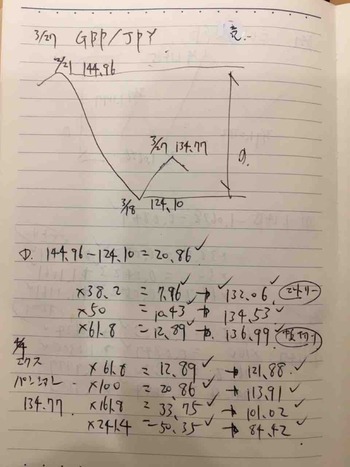 3/27 GBP/JPY 売
2/21 144.96
3/27 134.77
①
3/18 124.10
①. 144.96-124.10=20.86✓
×38.2 = 7.96✓→132.06✓ エントリー
×50 = 10.43✓→134.53✓
×61.8 = 12.89✓→136.99✓ 損切り
エクス ×61.8 = 12.89✓→121.88✓
パンション ×100 = 20.86✓→113.91✓
134.77 ×161.8 = 33.75✓→101.02✓
×241.4 = 50.35✓→84.42✓